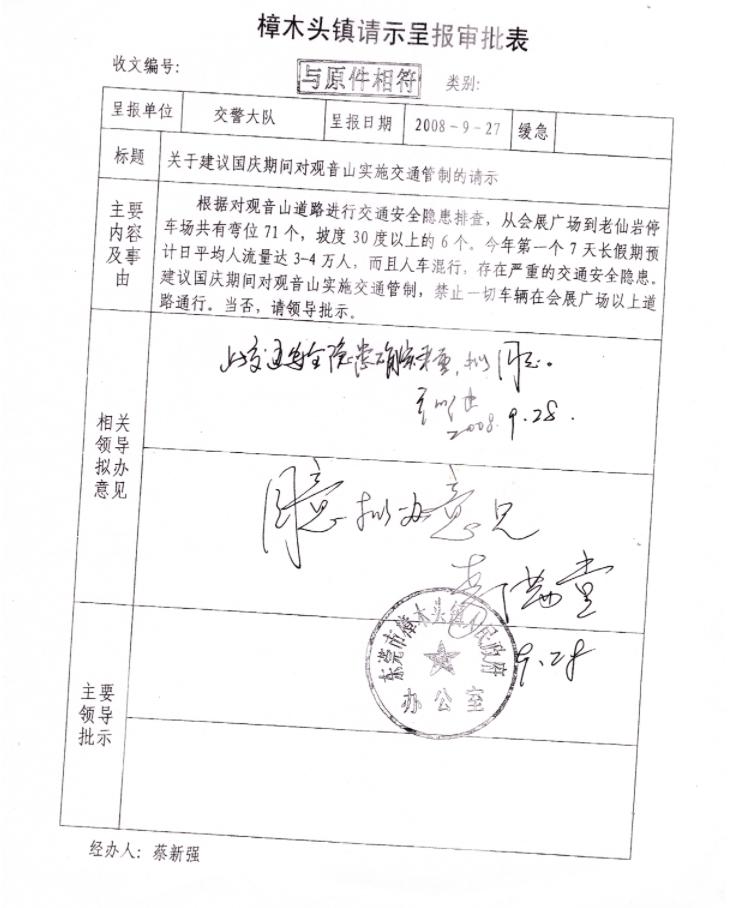 樟木头镇请示呈报审批表
收文编号：
与原件相符
类别：
呈报单位 交警大队 呈报日期 2008-9-27 缓急
标题 关于建议国庆期间对观音山实施交通管制的请示
主要
内容
及事
由
根据对观音山道路进行交通安全隐患排查，从会展广场到老仙岩停
车场共有弯位 71 个，坡度 30 度以上的 6 个。今年第一个 7 天长假期预
计日平均人流量达 3-4 万人，而且人车混行，存在严重的交通安全隐患。
建议国庆期间对观音山实施交通管制，禁止一切车辆在会展广场以上道
路通行。当否，请领导批示。
相关
领导
拟办
意见
交通安全隐患确 拟同意。
2008.9.28.
同意拟办意见
满堂
9.28
东莞市樟木头镇人民政府
办公室
主要
领导
批示
经办人：蔡新强